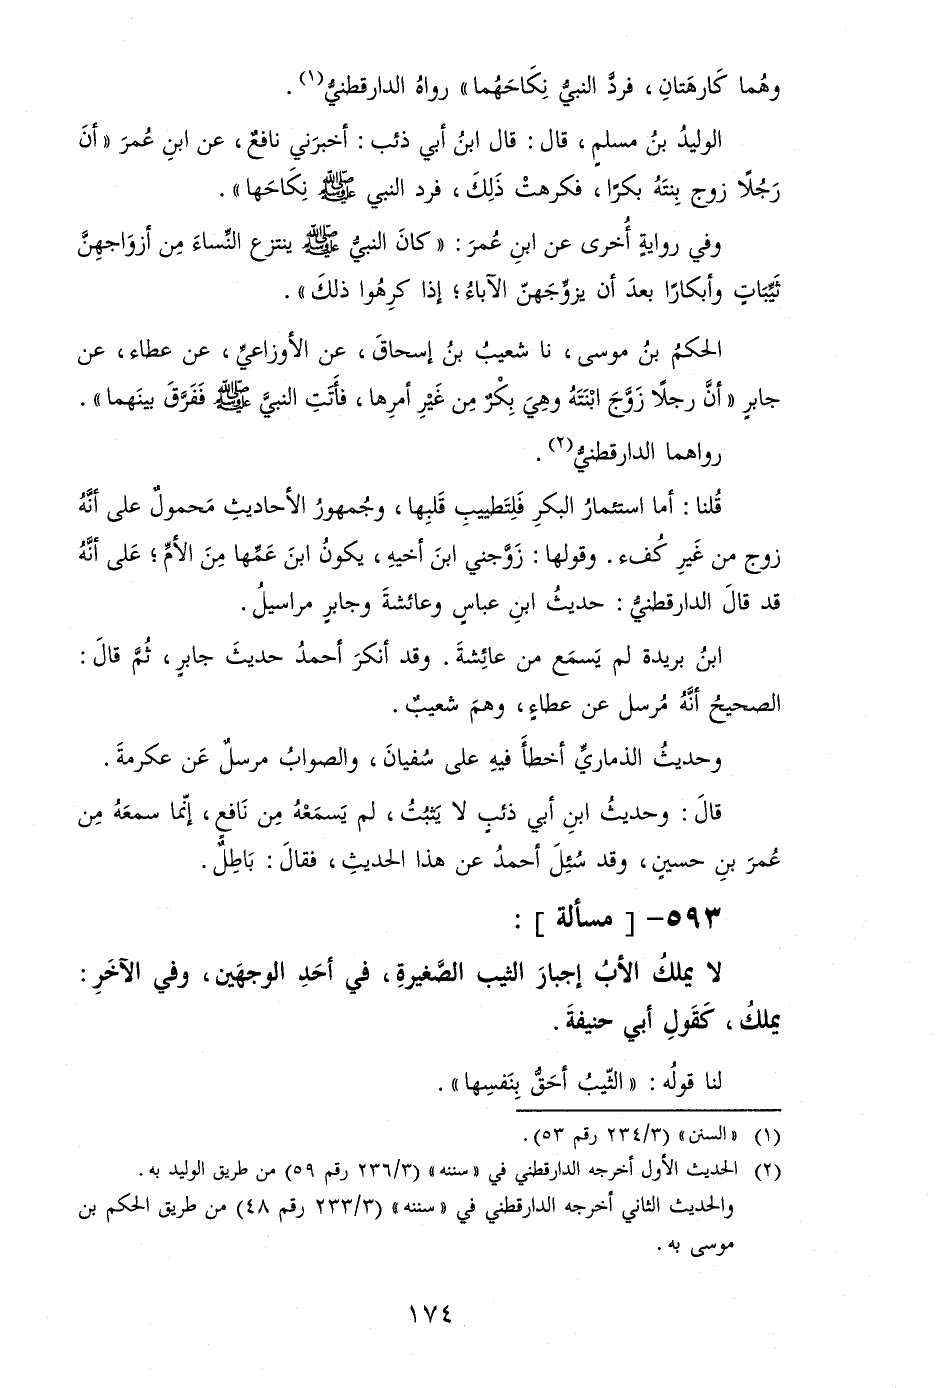 وهُما كَارهَتانِ ، فردَّ النبيُّ نِكَاحَهُما» رواهُ الدارقطنيُّ(١) .
الوليدُ بنُ مسلمٍ ، قال : قال ابنُ أبي ذئب : أخبرَني نافعٌ ، عن ابنِ عُمرَ «أنَ
رَجُلًا زوج بِنتَهُ بكرًا ، فكرهتْ ذَلِكَ ، فرد النبي ﷺ نِكَاحَها» .
وفي روايةٍ أُخرى عن ابنِ عُمرَ : «كانَ النبيُّ ﷺ ينتزع النِّساءَ مِن أزوَاجهِنَّ
ثَيِّبَاتٍ وأبكارًا بعدَ أن يزوِّجَهنّ الآباءُ ؛ إذا كرِهُوا ذلكَ» .
الحكمُ بنُ موسى ، نا شعيبُ بنُ إسحاقَ ، عن الأوزاعيِّ ، عن عطاء ، عن
جابرٍ «أنَّ رجلًا زَوَّجَ ابْنَتَهُ وهِيَ بِكْرٌ مِن غَيْرِ أمرِها ، فأَتَتِ النبيَّ ﷺ فَفَرَّقَ بينَهما» .
رواهما الدارقطنيُّ(٢) .
قُلنا : أما استئمارُ البكرِ فَلِتَطييبِ قَلبِها ، وجُمهورُ الأحاديثِ مَحمولٌ على أنَّهُ
زوج من غَيرِ كُفء . وقولها : زَوَّجني ابنَ أخيهِ ، يكونُ ابنَ عَمِّها مِنَ الأمِّ ؛ عَلى أنَّهُ
قد قالَ الدارقطنيُّ : حديثُ ابنِ عباسٍ وعائشةَ وجابرٍ مراسيلُ .
ابنُ بريدة لم يَسمَع من عائِشةَ . وقد أنكرَ أحمدُ حديثَ جابرٍ ، ثُمَّ قالَ :
الصحيحُ أنَّهُ مُرسل عن عطاءٍ ، وهمَ شعيبٌ .
وحديثُ الذماريِّ أخطأَ فيهِ على سُفيانَ ، والصوابُ مرسلٌ عَن عكرمةَ .
قالَ : وحديثُ ابنِ أبي ذئبٍ لا يَثبُتُ ، لم يَسمَعْهُ مِن نَافعٍ ، إنّما سمعَهُ مِن
عُمرَ بنِ حسينٍ ، وقد سُئِلَ أحمدُ عن هذا الحديثِ ، فقالَ : بَاطِلٌ .
٥٩٣- [ مسألة ] :
لا يملكُ الأبُ إجبارَ الثيب الصَّغيرةِ ، في أحَدِ الوجهَين ، وفي الآخَرِ :
يملكُ ، كَقَولِ أبي حنيفةَ .
لنا قولُه : «الثّيبُ أحَقُّ بِنَفسِها» .
(١) «السنن» (٣/ ٢٣٤ رقم ٥٣) .
(٢) الحديث الأول أخرجه الدارقطني في «سننه» (٣/ ٢٣٦ رقم ٥٩) من طريق الوليد به .
والحديث الثاني أخرجه الدارقطني في «سننه» (٣/ ٢٣٣ رقم ٤٨) من طريق الحكم بن
موسى به .
١٧٤